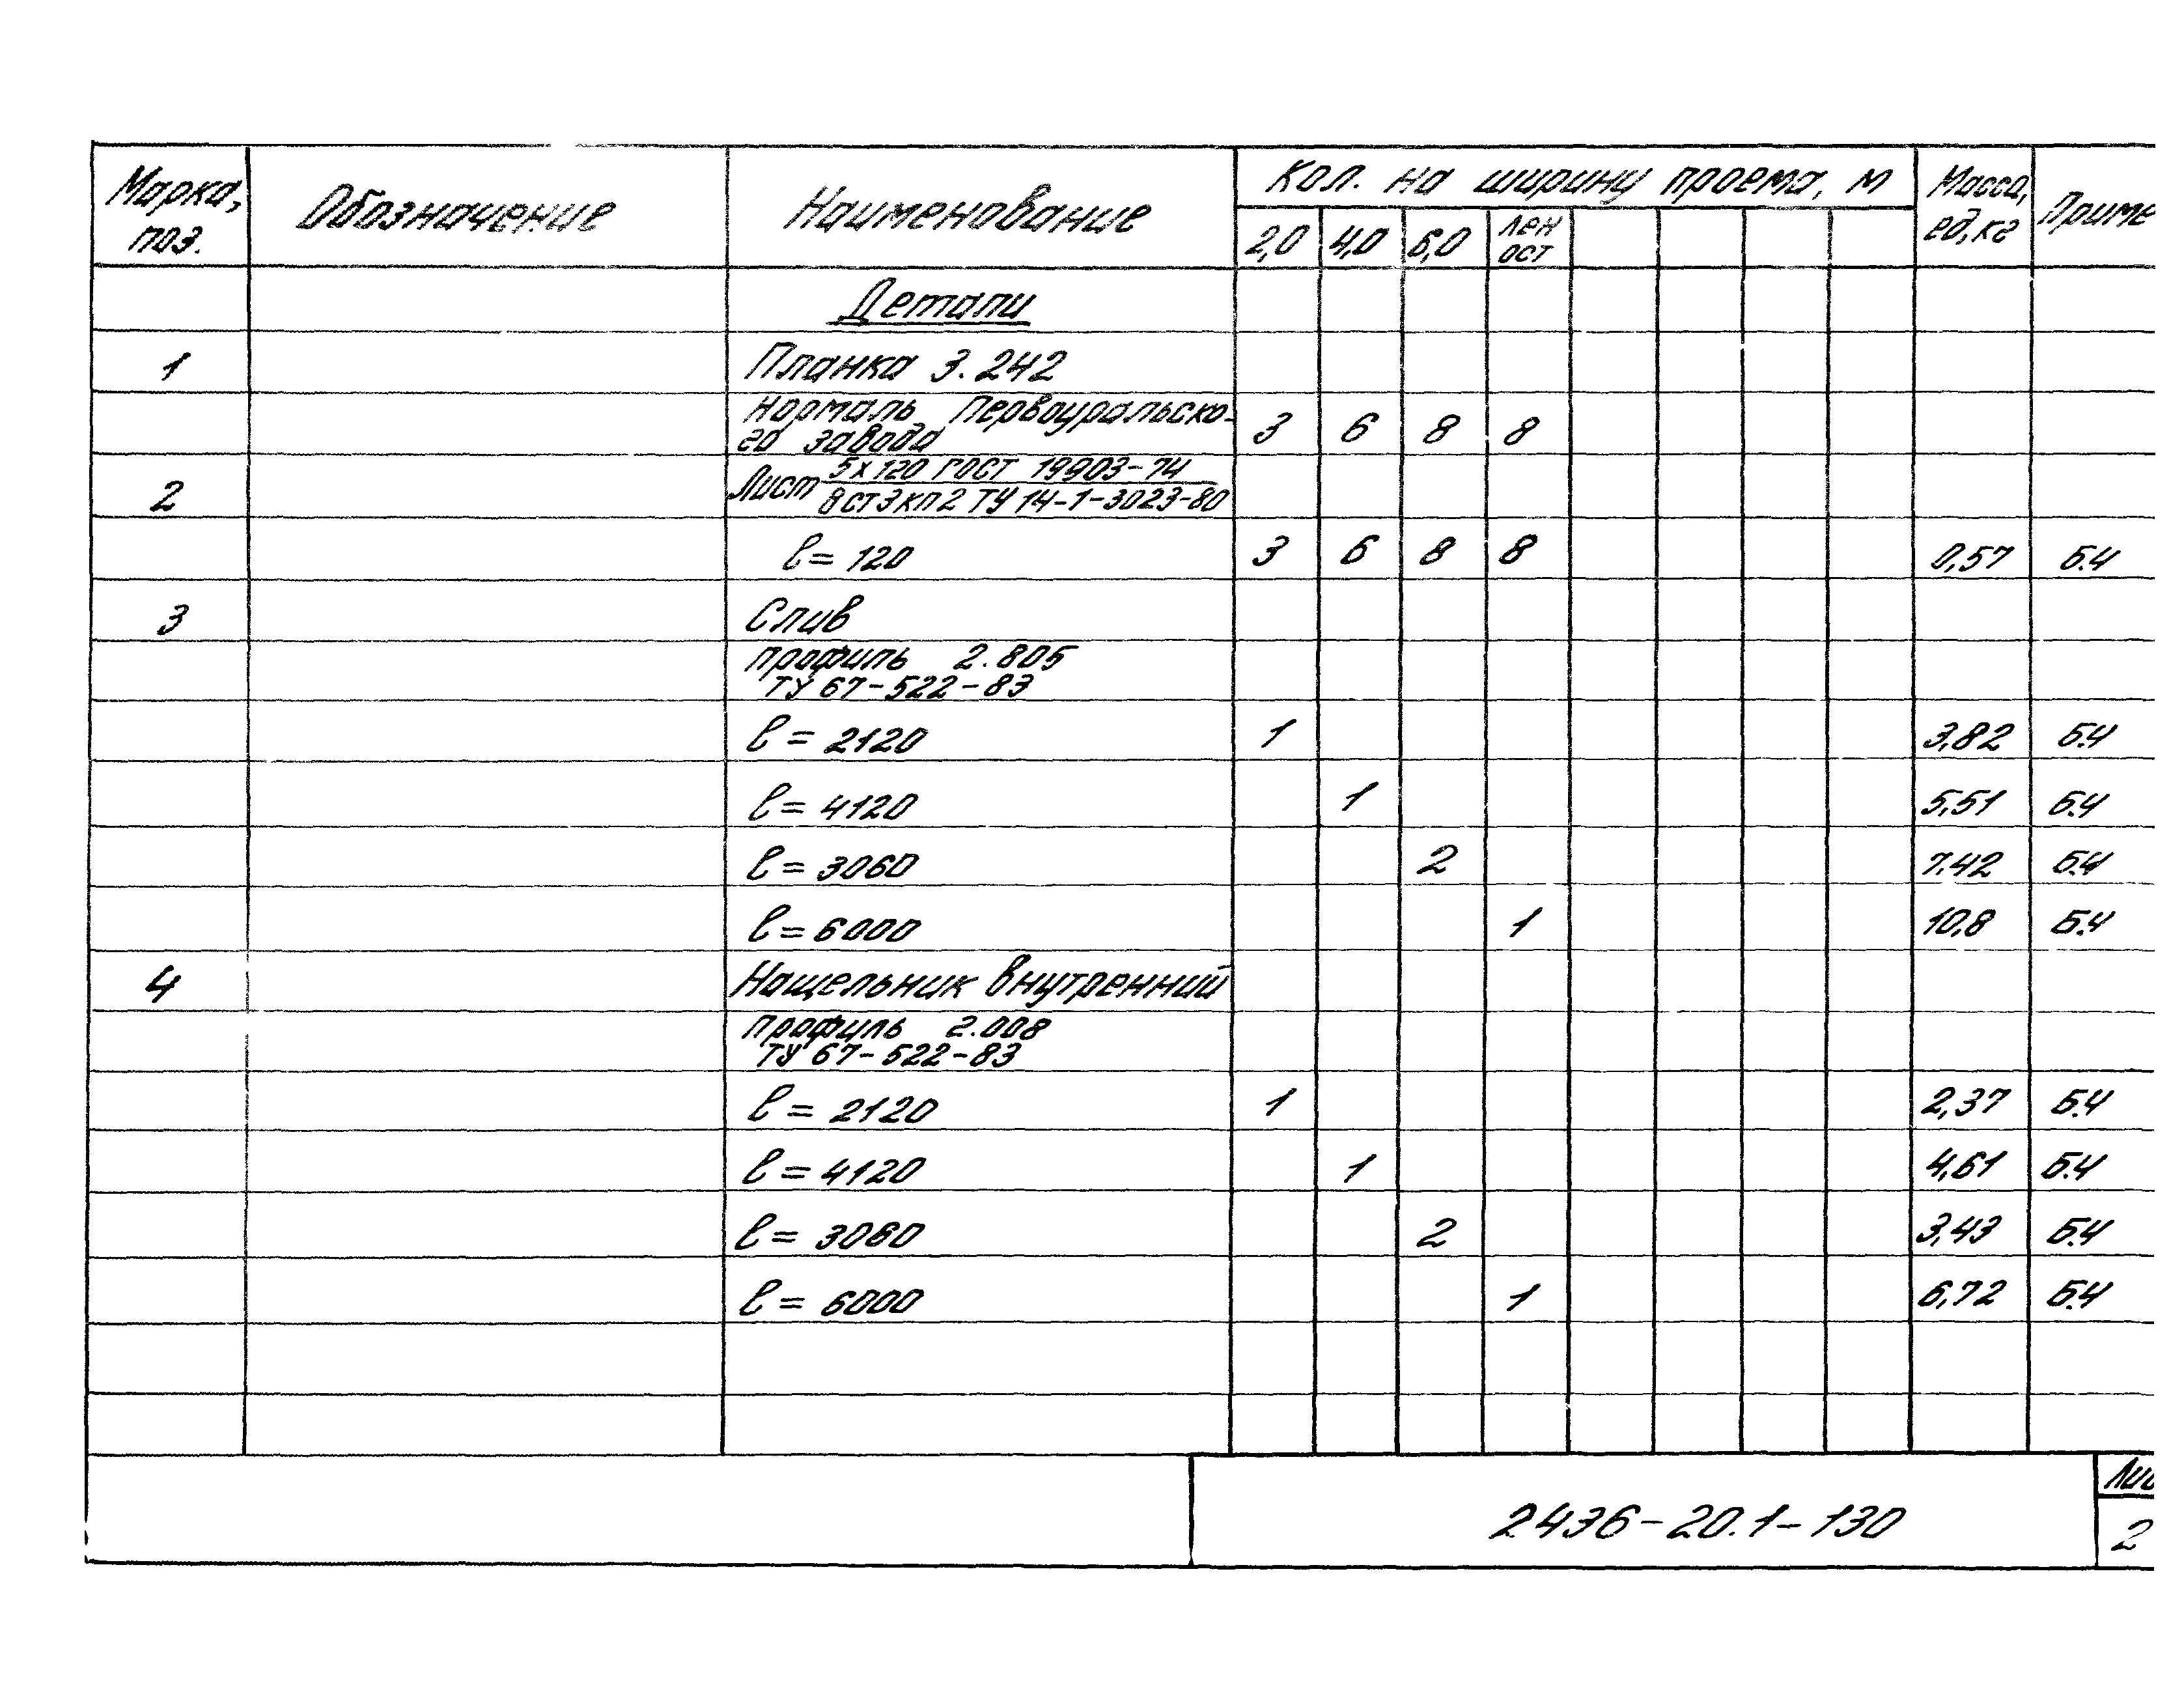 Марка, поз. Обозначение Наименование Кол. на ширину проема, м Масса, ед, кг Приме
2,0 4,0 6,0 лен ост
Детали
1 Планка 3.242
Нормаль Первоуральско-
го завода 3 6 8 8
2 Лист 5х120 ГОСТ 19903-74
ВСт3кп2 ТУ 14-1-3023-80
ℓ= 120 3 6 8 8 0,57 Б.ч
3 Слив
профиль 2.805
ТУ 67-522-83
ℓ = 2120 1 3,82 Б.ч
ℓ = 4120 1 5,51 Б.ч
ℓ = 3060 2 7.42 Б.ч
ℓ = 6000 1 10,8 Б.ч
4 Нащельник внутренний
профиль 2.008
ТУ 67-522-83
ℓ = 2120 1 2,37 Б.ч
ℓ = 4120 1 4,61 Б.ч
ℓ = 3060 2 3,43 Б.ч
ℓ = 6000 1 6,72 Б.ч
2436-20.1-130
Лис
2